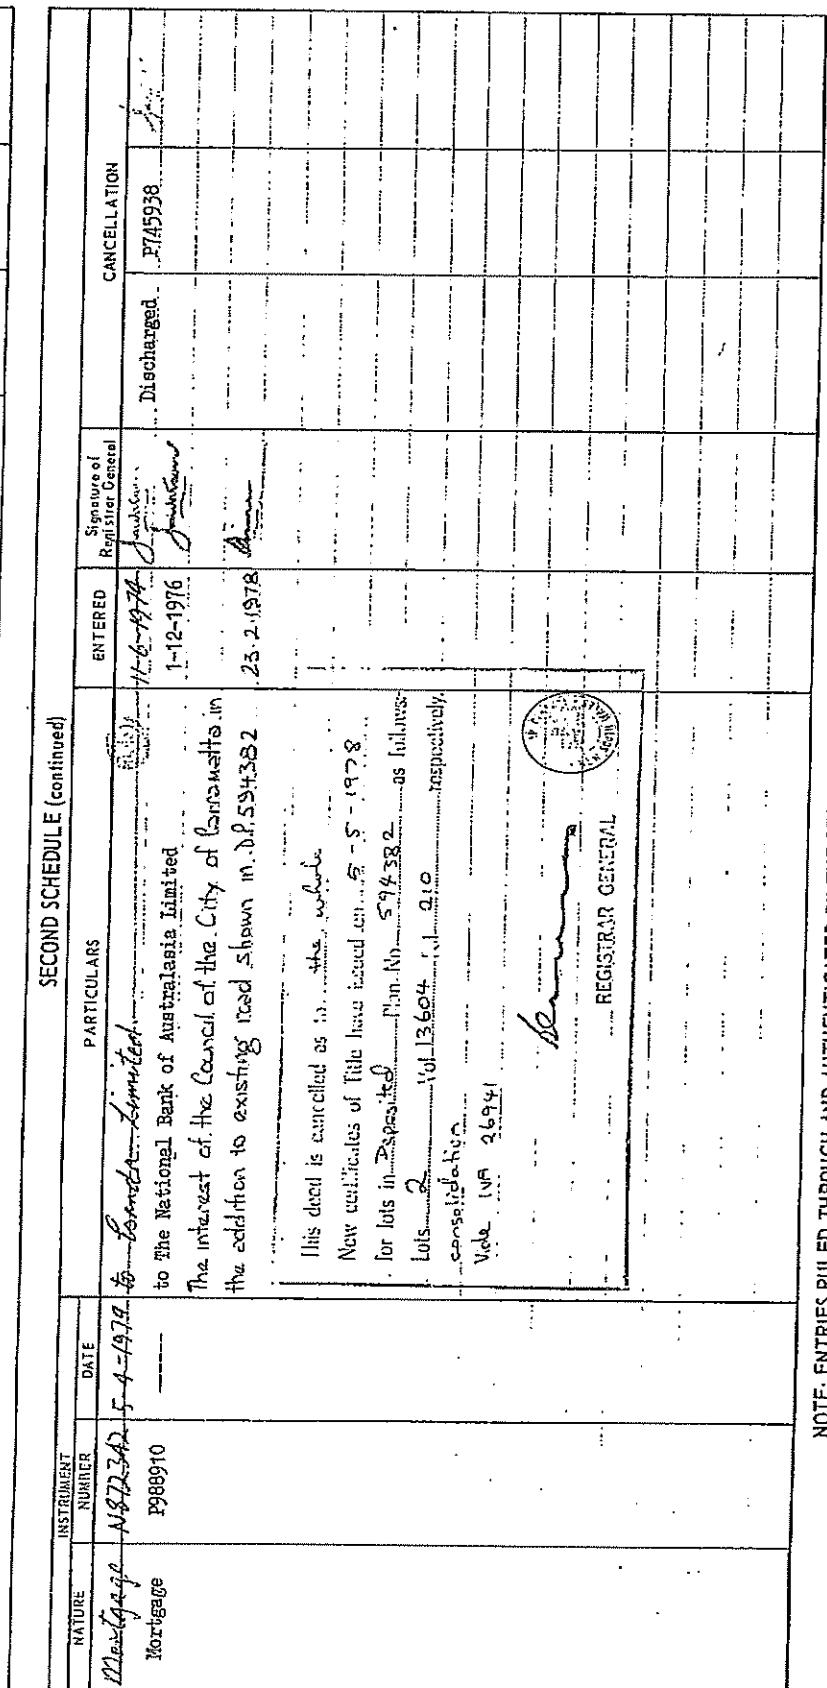 SECOND SCHEDULE (continued)
INSTRUMENT
NATURE NUMBER DATE PARTICULARS ENTERED Signature of Registrar General CANCELLATION
Mortgage N872342 5-4-1974 to Limited 11-6-1974
Mortgage P988910 to The National Bank of Australasia Limited 1-12-1976 Discharged P745938
The interest of the Council of the City of Parramatta in
the addition to existing road shown in D.P. 594382 23.2.1978
This deed is cancelled as to the whole
New certificates of Title have issued on 5-5-1978
for lots in Deposited Plan No. 594382 as follows:-
Lots 2 Vol 13604 Fol 210 respectively.
consolidation
Vide IVA 26941
REGISTRAR GENERAL
NOTE: ENTRIES RULED THROUGH AND AUTHENTICATED